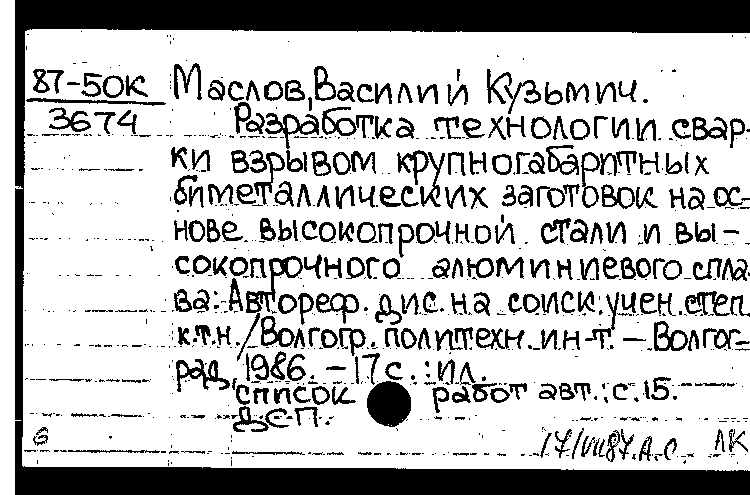 87-50К Маслов, Василий Кузьмич.
3674 Разработка технологии свар-
ки взрывом крупногабаритных
биметаллических заготовок на ос-
нове высокопрочной стали и вы-
сокопрочного алюминиевого спла
ва: Автореф. дис. на соиск. учен. степ.
к.т.н. / Волгогр. политехн. ин-т. – Волгог-
рад, 1986. – 17 с. : ил.
список работ авт.: с. 15.
ДСП.
17/VII87. А.С. ЛК